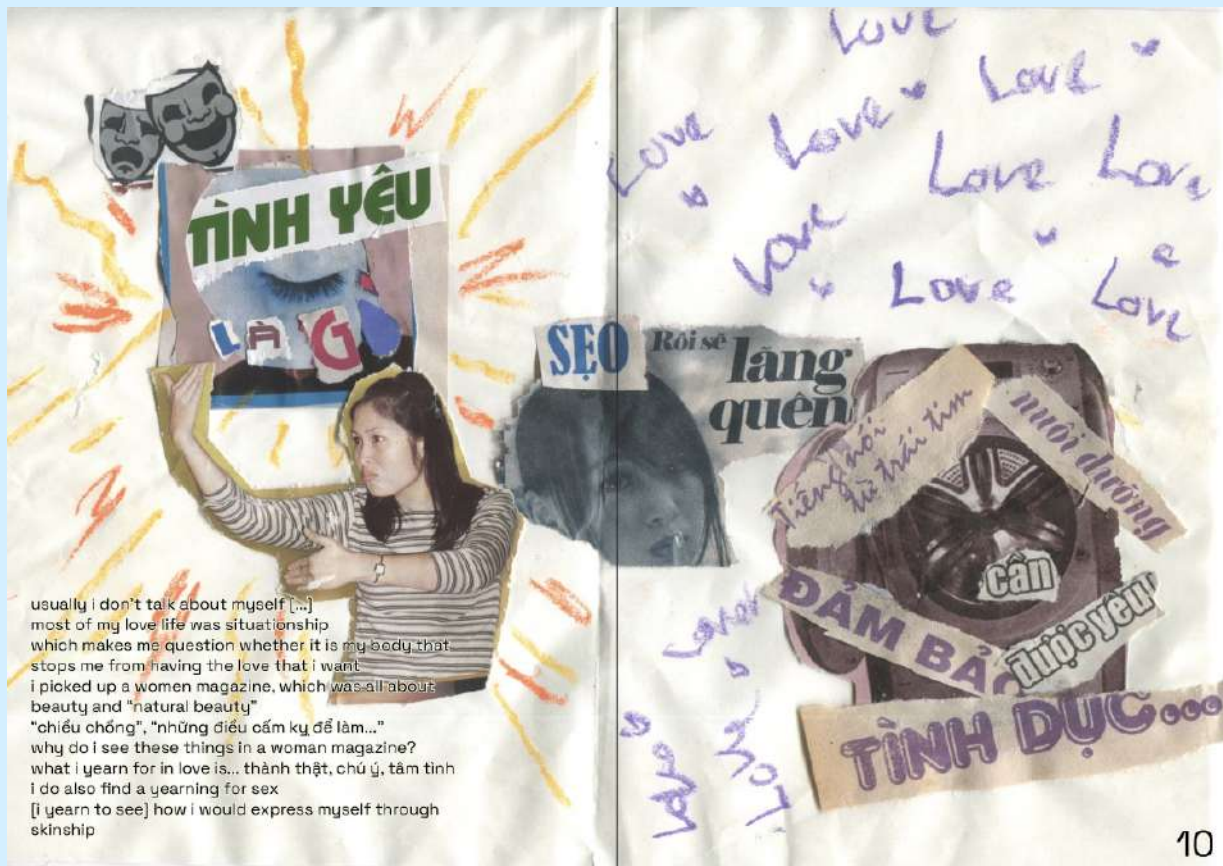 TÌNH YÊU
LÀ G
usually i don't talk about myself [...]
most of my love life was situationship
which makes me question whether it is my body that
stops me from having the love that i want
i picked up a women magazine, which was all about
beauty and “natural beauty”
“chiều chồng”, “những điều cấm kỵ để làm...”
why do i see these things in a woman magazine?
what i yearn for in love is... thành thật, chú ý, tâm tình
i do also find a yearning for sex
[i yearn to see] how i would express myself through
skinship
SẸO
Rồi sẽ
lãng
quên
Love
Love
Love
Love
Love
Love
Love
Love
Love
Tiếng nói
từ trái tim
nuôi dưỡng
cần
được yêu
ĐẢM BẢO
TÌNH DỤC...
Love
Love
Love
10